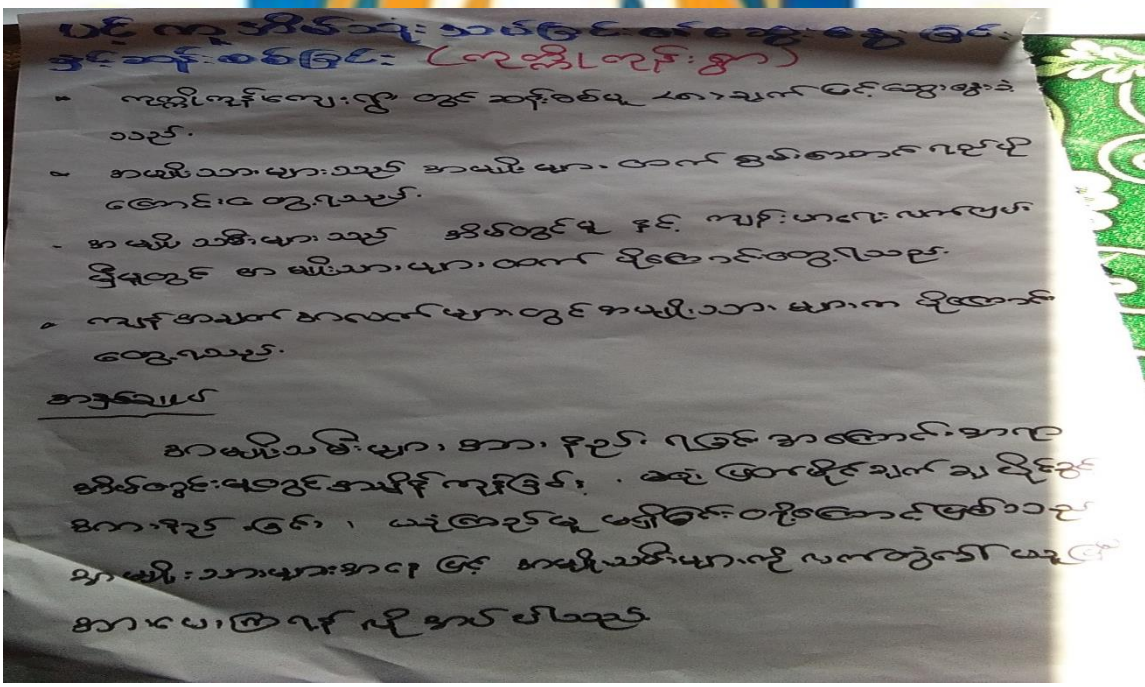 ပင့်ကူအိမ်သုံးသပ်ခြင်းဖော်ဆွေးနွေးခြင်း
နှင့်ဆန်းစစ်ခြင်း (ကုက္ကိုကုန်းရွာ)
- ကုက္ကိုကုန်ကျေးရွာ တွင် ဆန်းစစ်မှု ၄၈၁ချက် ဖြင့်ဆွေးနွေးခဲ့
သည်.
- အမျိုးသားများသည် အမျိုးများ ထက် စွမ်းဆောင်ရည်ပို
ကြောင်းတွေ့ရသည်.
- အမျိုးသမီးများသည် အိမ်တွင်မှု နှင့် ကျန်းမာရေးလက်လှမ်း
မှီမှုတွင် အမျိုးသားများထက် ပိုကြောင်းတွေ့ရသည်.
- ကျန်အချက်အလက်များတွင်အမျိုးသားများက ပိုကြောင်း
တွေ့ရသည်.
အနှစ်ချုပ်
အမျိုးသမီးများအား နည်းရခြင်းအကြောင်းအရာ
အိမ်တွင်းမှုတွင်အချိန်ကုန်ခြင်း, ဆုံးဖြတ်ပိုင်ချက်ချပိုင်ခွင့်
အားနည်းခြင်း, ယုံကြည်မှု မရှိခြင်းတို့ကြောင့်ဖြစ်သည်
အမျိုးသားများအနေဖြင့် အမျိုးသမီးများကိုလက်တွဲခေါ်ယူပြီး
အားပေးကြရန် လိုအပ်ပါသည်